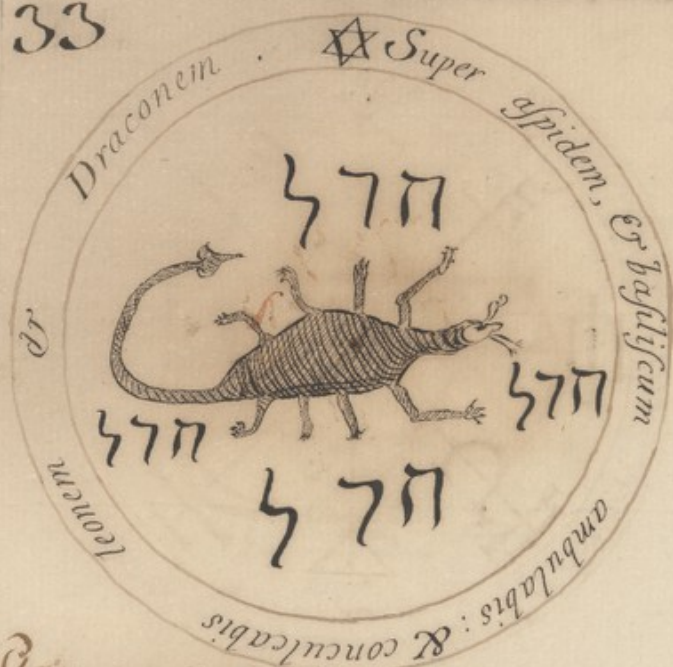 33
✡ Super aſpidem, & baſiliſcum ambulabis : & conculcabis leonem & Draconem .
חרל
חרל
חרל
חרל